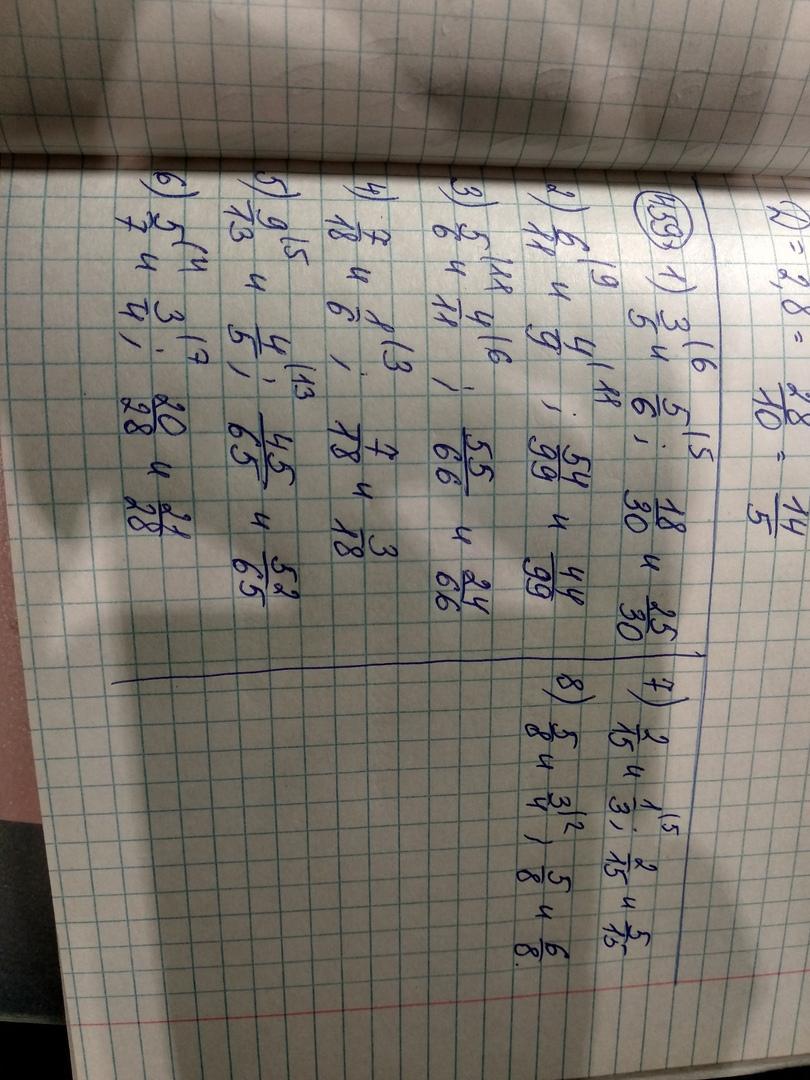 2) = 2,8 = 28/10 = 14/5
459. 1) 3/5 |6 и 5/6 |5; 18/30 и 25/30
2) 6/11 |9 и 4/9 |11; 54/99 и 44/99
3) 5/6 |11 и 4/11 |6; 55/66 и 24/66
4) 7/18 и 1/6 |3; 7/18 и 3/18
5) 9/13 |5 и 4/5 |13; 45/65 и 52/65
6) 5/7 |4 и 3/4 |7; 20/28 и 21/28
7) 2/15 и 1/3 |5; 2/15 и 5/15
8) 5/8 и 3/4 |2; 5/8 и 6/8.